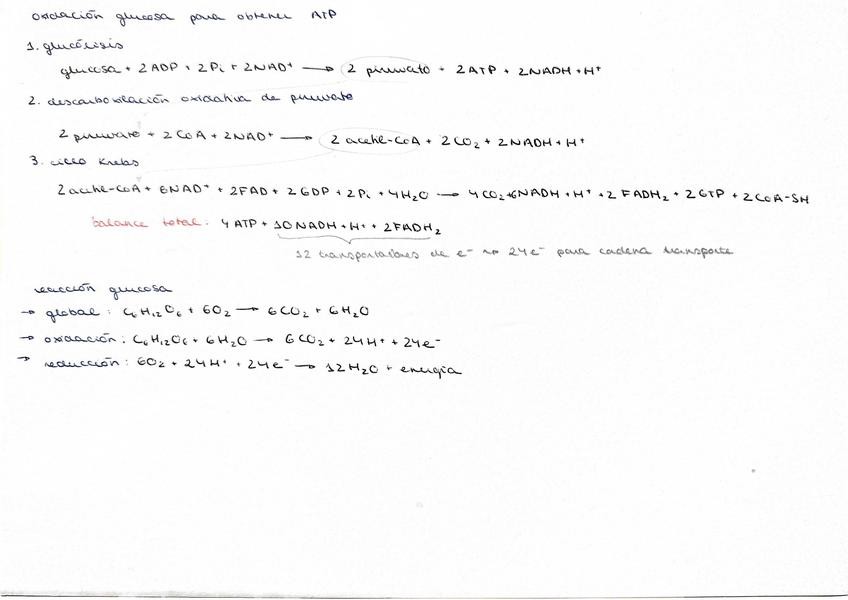 oxidación glucosa para obtener ATP
1. glucólisis
glucosa + 2ADP + 2Pi + 2NAD⁺ → 2 piruvato + 2ATP + 2NADH + H⁺
2. descarboxilación oxidativa de piruvato
2 piruvato + 2CoA + 2NAD⁺ → 2 acetil-CoA + 2CO₂ + 2NADH + H⁺
3. ciclo Krebs
2 acetil-CoA + 6NAD⁺ + 2FAD + 2GDP + 2Pi + 4H₂O → 4CO₂ + 6NADH + H⁺ + 2FADH₂ + 2GTP + 2CoA-SH
balance total: 4ATP + 10NADH + H⁺ + 2FADH₂
12 transportadores de e⁻ → 24e⁻ para cadena transporte
reacción glucosa
→ global: C₆H₁₂O₆ + 6O₂ → 6CO₂ + 6H₂O
→ oxidación: C₆H₁₂O₆ + 6H₂O → 6CO₂ + 24H⁺ + 24e⁻
→ reducción: 6O₂ + 24H⁺ + 24e⁻ → 12H₂O + energía